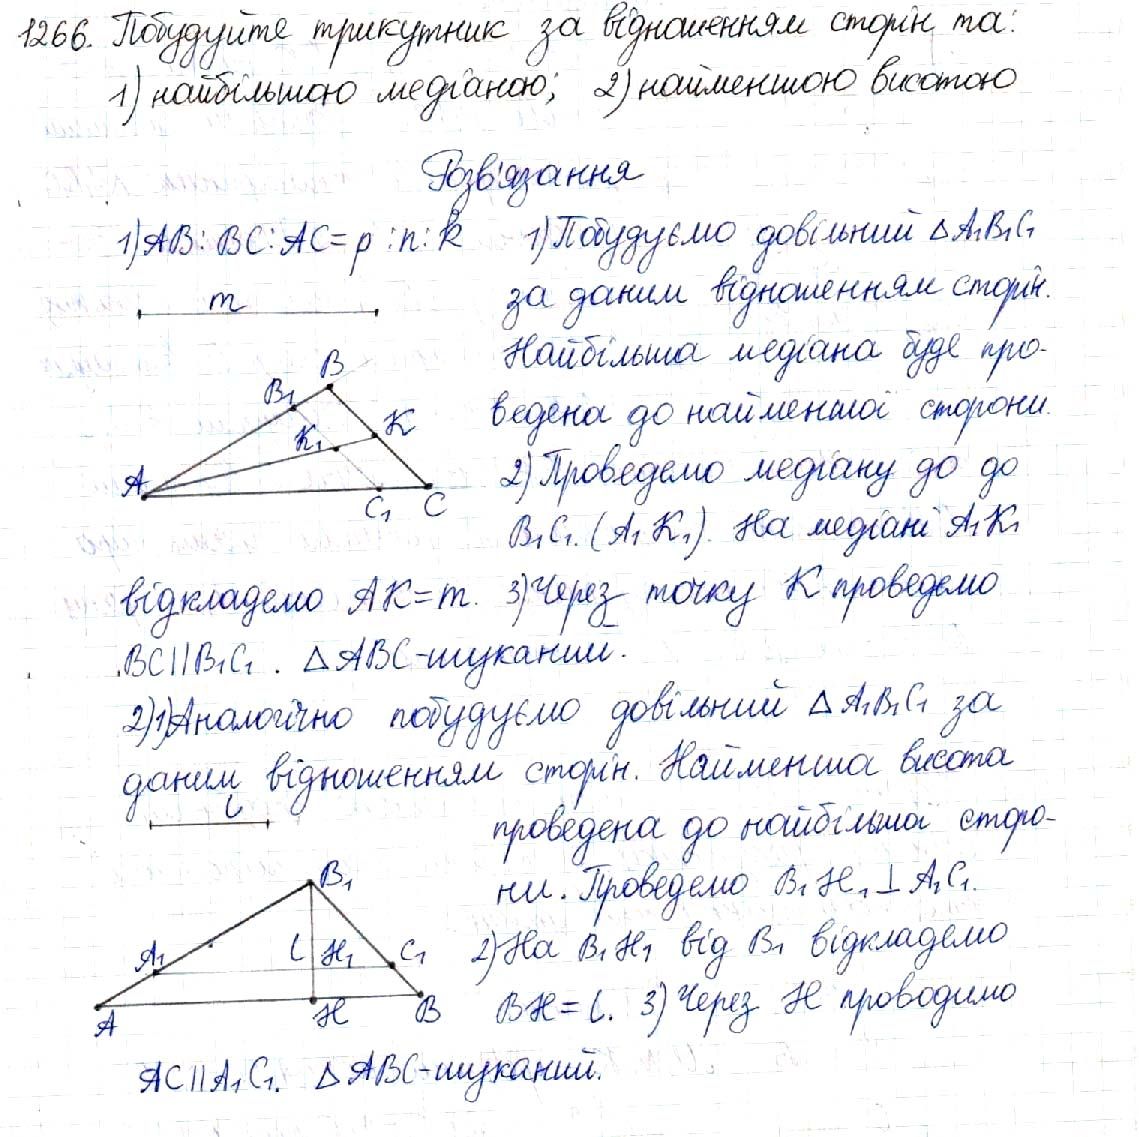 1266. Побудуйте трикутник за відношенням сторін та:
1) найбільшою медіаною; 2) найменшою висотою
Розв'язання
1) AB : BC : AC = p : n : k
m
B
B₁
K
K₁
A
C₁
C
1) Побудуємо довільний △A₁B₁C₁
за даним відношенням сторін.
Найбільша медіана буде про-
ведена до найменшої сторони.
2) Проведемо медіану до до
B₁C₁. (A₁K₁). На медіані A₁K₁
відкладемо AK = m. 3) Через точку K проведемо
BC || B₁C₁. △ABC - шуканий.
2) 1) Аналогічно побудуємо довільний △A₁B₁C₁ за
даним відношенням сторін. Найменша висота
l
проведена до найбільшої сторо-
ни. Проведемо B₁H₁ ⊥ A₁C₁.
2) На B₁H₁ від B₁ відкладемо
BH = l. 3) Через H проводимо
B₁
A₁
l
H₁
C₁
A
H
B
AC || A₁C₁. △ABC - шуканий.